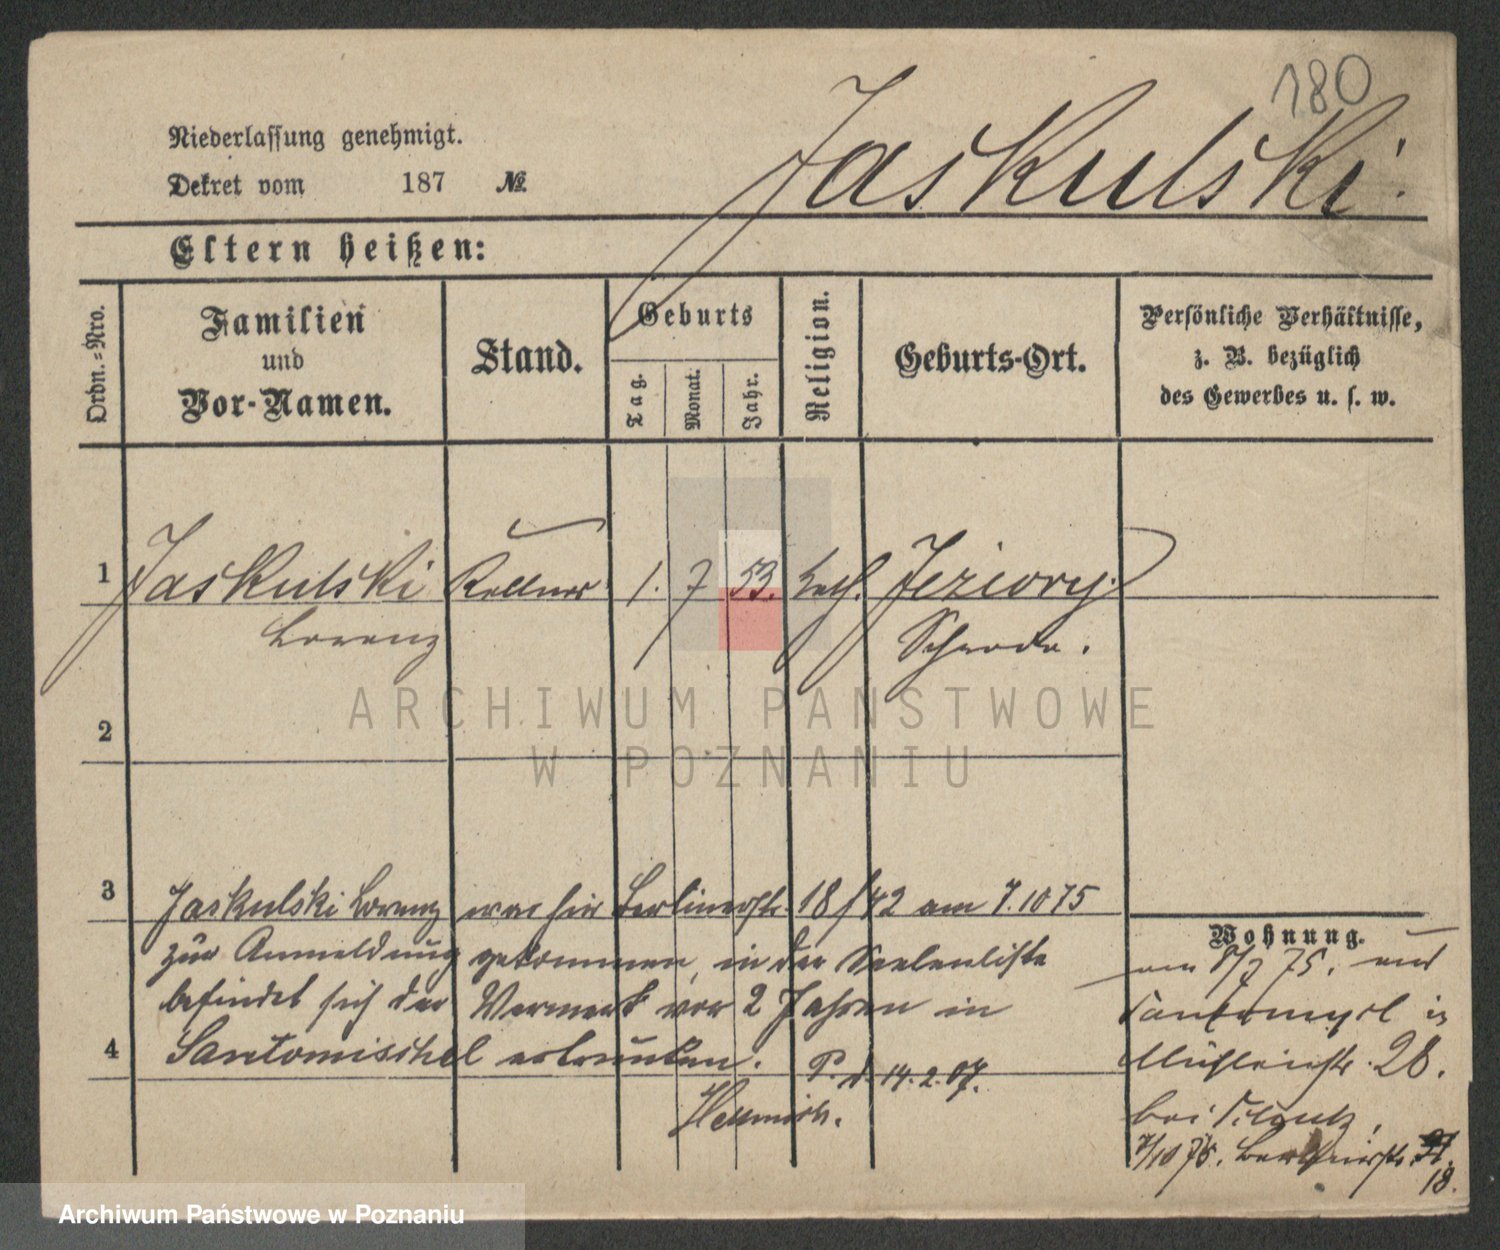 180
Jaskulski.
Niederlassung genehmigt.
Dekret vom 187 №
Eltern heißen:
Ordn.=Nro.
Familien
und
Vor-Namen.
Stand.
Geburts
Tag.
Monat.
Jahr.
Religion.
Geburts-Ort.
Persönliche Verhältnisse,
z. B. bezüglich
des Gewerbes u. s. w.
1 Jaskulski Kellner 1. 7 53. kath. Jeziory
Lorenz Schroda.
2
ARCHIWUM PAŃSTWOWE
W POZNANIU
3 Jaskulski Lorenz war hier Berlinerstr. 18/42 am 7.10 75
zur Anmeldung gekommen, in der Seelenliste
befindet sich der Vermerk vor 2 Jahren in
4 Santomischel ertrunken.
P. d. 14.2.07.
Hellmich.
Wohnung.
am 8/7 75. aus
Santomysl in
Mühlenstr. 28.
bei
7/10 75. Berlinerstr.
18.
Archiwum Państwowe w Poznaniu